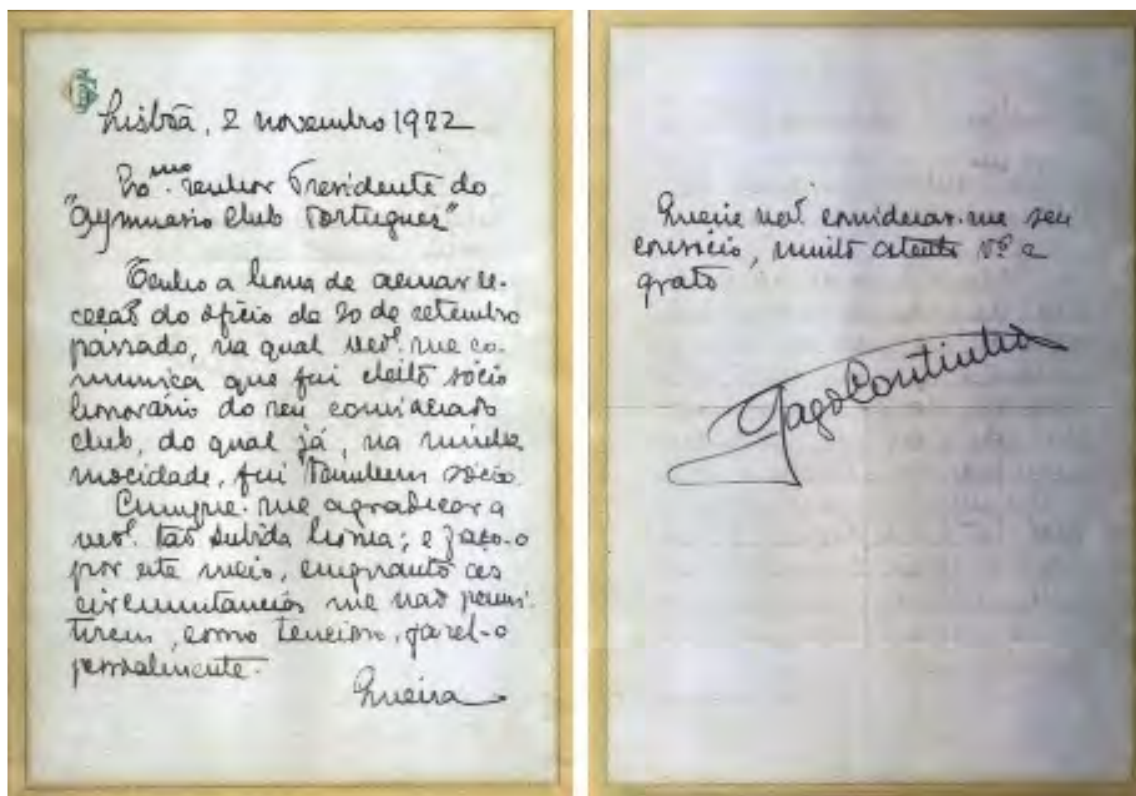 Lisbôa, 2 novembro 1922
Exmo. Senhor Presidente do
"Gymnasio Club Portuguez"
Tenho a honra de acusar re-
ceção do ofício de 20 de setembro
passado, na qual me co-
munica que fui eleito sócio
honorário do seu considerado
club, do qual já, na minha
mocidade, fui tambem sócio.
Cumpre-me agradecer a
tão subida honra; e faço-o
por este meio, emquanto as
circumstancias me não permi-
tirem, como tenciono, fazel-o
pessoalmente.
Queira
Queira considerar-me seu
consócio, muito atento e
grato
Gago Coutinho